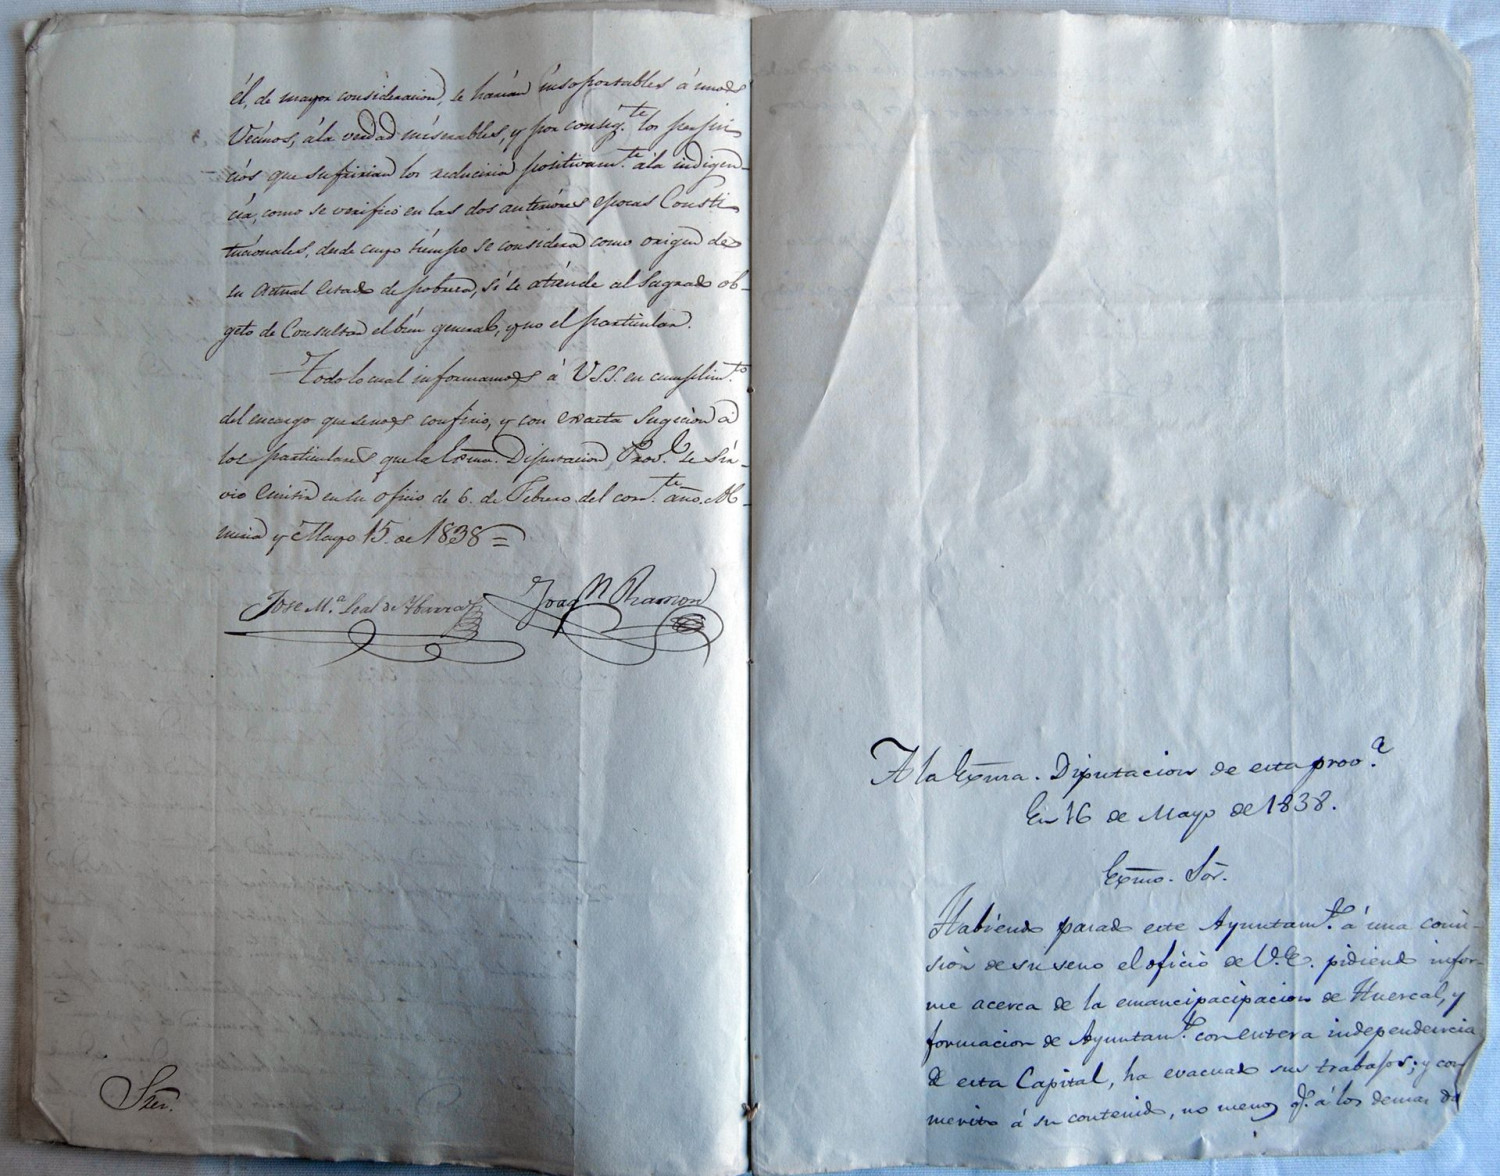 él, de mayor consideracion, se harian insoportables á unos
Vecinos, ála verdad miserables, y por consig.te los perjui
cios que sufririan los reduciria positivam.te ála indigen-
cia, como se verificó en las dos anteriores epocas Consti
tucionales, desde cuyo tiempo se considera como origen de
su actual estado de pobreza, si se atiende al sagrado ób-
geto de Consultar el bien general, y no el particular.
Todo lo cual informamos á VSS. en cumplim.to
del encargo que se nos confirio, y con exacta sugecion á
los particulares que la Exma. Diputacion Prov.l se sir-
vio emitir en su oficio de 6. de Febrero del corr.te año. Al-
meria y Mayo 15. de 1838 =
Jose M.a Leal de Ybarra Joaq.n Ramon
Sres.
A la Exma. Diputacion de esta prov.a
En 16 de Mayo de 1838.
Exmo. Sor.
Habiendo pasado este Ayuntam.to á una comi-
sión de su seno el oficio de V.E. pidiendo infor-
me acerca de la emancipacipacion de Huercal, y
formacion de Ayuntam.to con entera independencia
de esta Capital, ha evacuado sus trabajos; y con
merito á su contenido, no menos q.e á los demas da